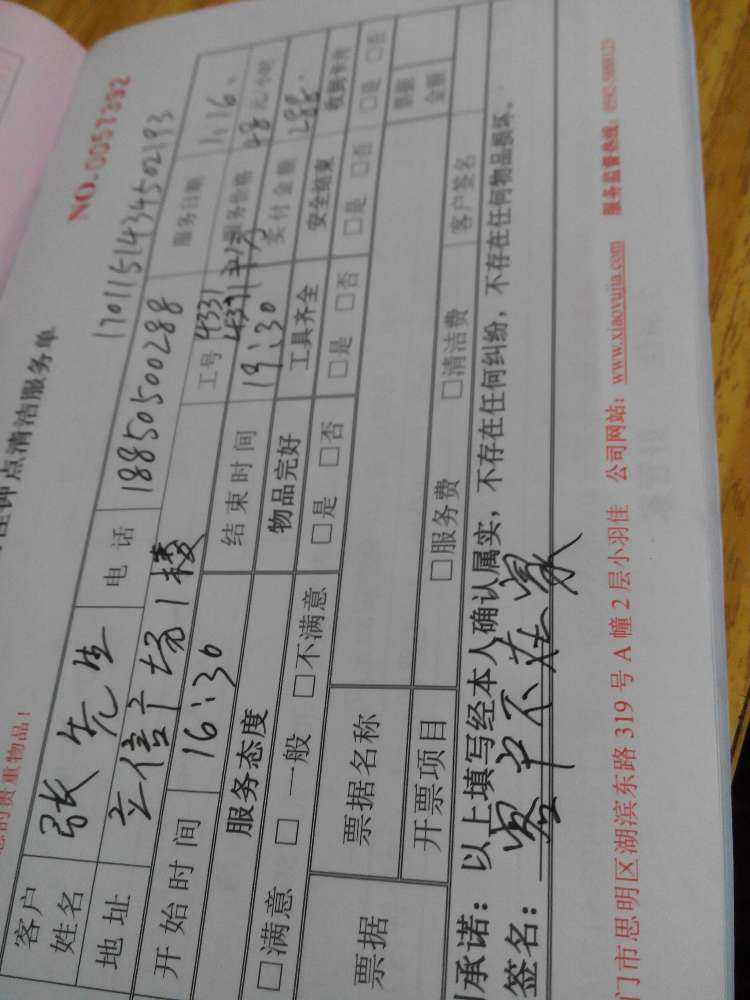 钟点清洁服务单
NO.0051392
您的贵重物品！
1701151434502193
客户姓名 张先生 电话 18850500288 服务日期 1.16
地址 立信广场1楼 工号 4331 服务价格 48元/小时
开始时间 16:30 结束时间 19:30 实付金额 288
服务态度 物品完好 工具齐全 安全结束 收到卡片
□满意 □一般 □不满意 □是 □否 □是 □否 □是 □否 □是 □否
票据 票据名称 票据金额
开票项目 □服务费 □清洁费 客户签名
承诺：以上填写经本人确认属实，不存在任何纠纷，不存在任何物品损坏。
签名：客户不在家
门市思明区湖滨东路319号A幢2层小羽佳 公司网站：www.xiaoyujia.com 服务监督热线：0592-5688123